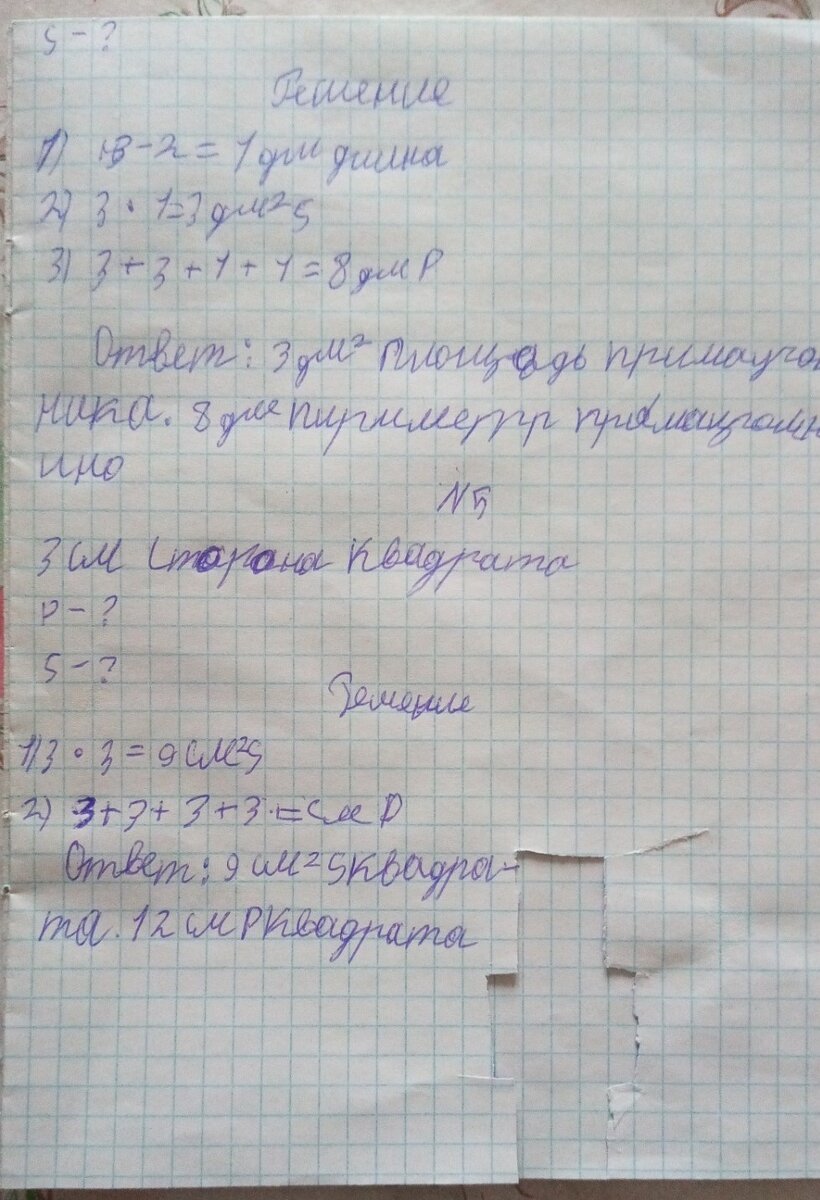 S - ?
Решение
1) 3 - 2 = 1 дм длина
2) 3 • 1 = 3 дм² S
3) 3 + 3 + 1 + 1 = 8 дм P
Ответ: 3 дм² площадь примауго
ника. 8 дм пириметр прямаугольн
ино
N 5
3 см сторона квадрата
P - ?
S - ?
Решение
1) 3 • 3 = 9 см² S
2) 3 + 3 + 3 + 3 = см P
Ответ: 9 см² S квадра-
та. 12 см P квадрата